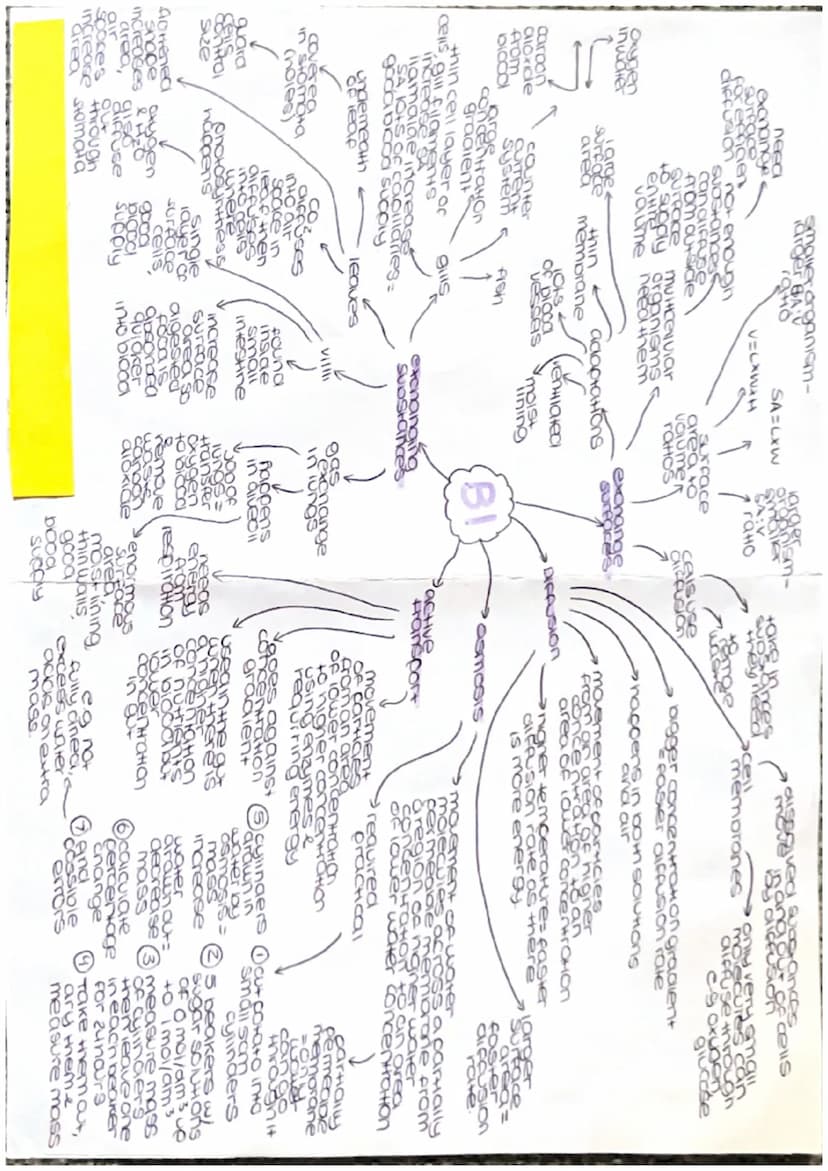 B1
exchange
surfaces
surface
area to
volume
ratios
smaller organism-
larger SA:V
ratio
V=LXWXH
SA=LXW
larger
organism-
smaller
SA:V
ratio
cells use
diffusion
take in
substances
they need
to remove
waste
multicellular
organisms
need them
not enough
substances
can diffuse
from outside
surface
to supply
entire
volume
need
exchange
surface
for efficient
diffusion
adaptations
large
surface
area
thin
membrane
lots
of blood
vessels
ventilated
moist
lining
Diffusion
cell
membranes
dissolved substances
move in and out of cells
by diffusion
only very small
molecules can
diffuse through
e.g oxygen,
glucose
bigger concentration gradient
= faster diffusion rate
happens in both solutions
and air
movement of particles
from an area of higher
concentration to an
area of lower concentration
higher temperatures= faster
diffusion rate as there
is more energy
larger
surface
area =
faster
diffusion
rate
osmosis
movement of water
molecules across a partially
permeable membrane from
a region of higher water
concentration to an area
of lower water concentration
partially
permeable
membrane
= only
water
can go
through it
required
practical
① cut potato into
small same
cylinders
② 5 beakers w/
sugar solutions
of 0 mol/dm³ up
to 1 mol/dm³
③ measure mass
of cylinders
then leave one
in each beaker
for 24 hours
④ Take them out,
dry them &
measure mass
⑤ cylinders
drawn in
water by
osmosis =
mass
increase
water
drawn out =
decrease
mass
⑥ calculate
percentage
change
⑦ find
possible
errors
e.g. not
fully dried,
excess water
adds on extra
mass.
active
transport
movement
of particles
from an area
of lower concentration
to higher concentration
using enzymes &
requiring energy
goes against
concentration
gradient
used in the gut
when there is
a lower
concentration
of nutrients
in gut
needs
energy
from
respiration
exchanging
substances
gills
fish
counter
current
system
oxygen
in water
carbon
dioxide
from
blood
large
concentration
gradient
thin cell layer of
cells, gill filaments
increase SA
lamallae increase
SA, lots of capillaries =
good blood supply
leaves
underneath
of leaf
covered
in stomata
(holes)
guard
cells
control
size
CO₂
diffuses
into air
space in
leaf then
diffuses
into cells
where
photosynthesis
happens
oxygen
& H₂O
also
diffuse
out
through
stomata
flattened
shape
increases
area,
air
spaces
increase
area
villi
found
inside
small
intestine
increase
surface
area so
digested
food is
absorbed
quicker
into blood
single
layer of
surface
cells,
good
blood
supply
gas
exchange
in lungs
job of
lungs =
transfer
oxygen
to blood
& remove
waste
carbon
dioxide
happens
in alveoli
enormous
surface
area,
moist lining,
thin walls,
good
blood
supply